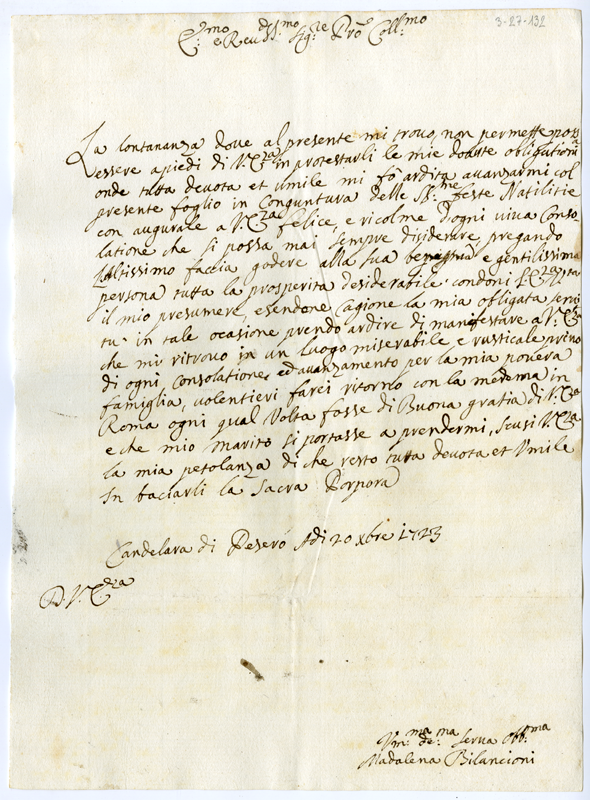 3-27-132
E.mo e Reu.d ss.mo Sig.re Prõ Coll.mo
La lontananza doue al presente mi trouo, non permette poss
essere a piedi di V.Eza in protestarli le mie douute obligationi
onde tutta deuota et umile mi fò ardita auanzarmi col
presente foglio in Conguntura delle SS.me feste Natilitie
con augurale a V.Eza felice, e ricolme d'ogni uiua Conso
latione che si possa mai sempre disiderare, pregando
l'altissimo faccia godere alla sua benigna e gentilissima
persona tutta la prosperità desiderabile condoni
il mio presumere, esendone Cagione la mia obligata serui
tu: in tale ocasione prendo ardire di manifestare a V.Eza
che mi ritrouo in un luogo miserabile e rusticale priuo
di ogni Consolatione, ed auanzamento per la mia pouera
famiglia, uolentieri farei ritorno con la medema in
Roma ogni qual Volta fosse di Buona gratia di V.Eza
e che mio Marito si portasse a prendermi, scusi V.Eza
la mia petolanza di che resto tutta deuota et Vmile
In baciarli la Sacra Porpora
Candelara di Pesero Adi 20 xbre 1723
D. V. Eza
Vm.ma de.ma serua obb.ma
Madalena Bilancioni